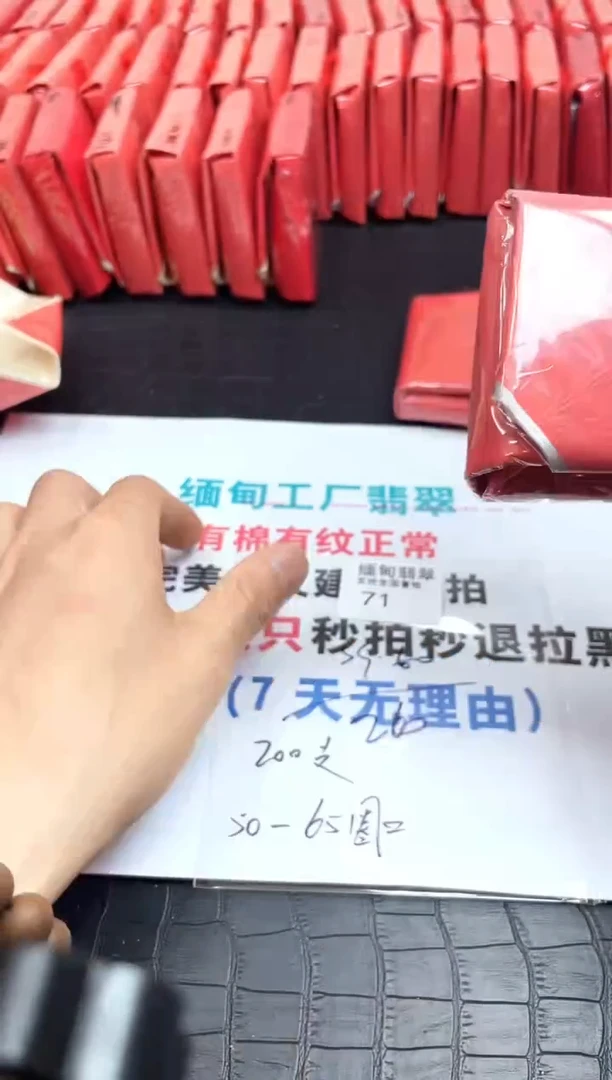 缅甸工厂翡翠
有棉有纹正常
完美
拍
缅甸翡翠
71
只秒拍秒退拉黑
(7天无理由)
200支
50-65圈口